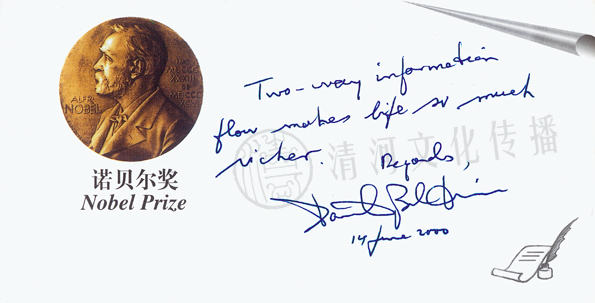 ALFR.
NOBEL
诺贝尔奖
Nobel Prize
Two-way information
flow makes life so much
richer.
Regards,
14 June 2000
清河文化传播